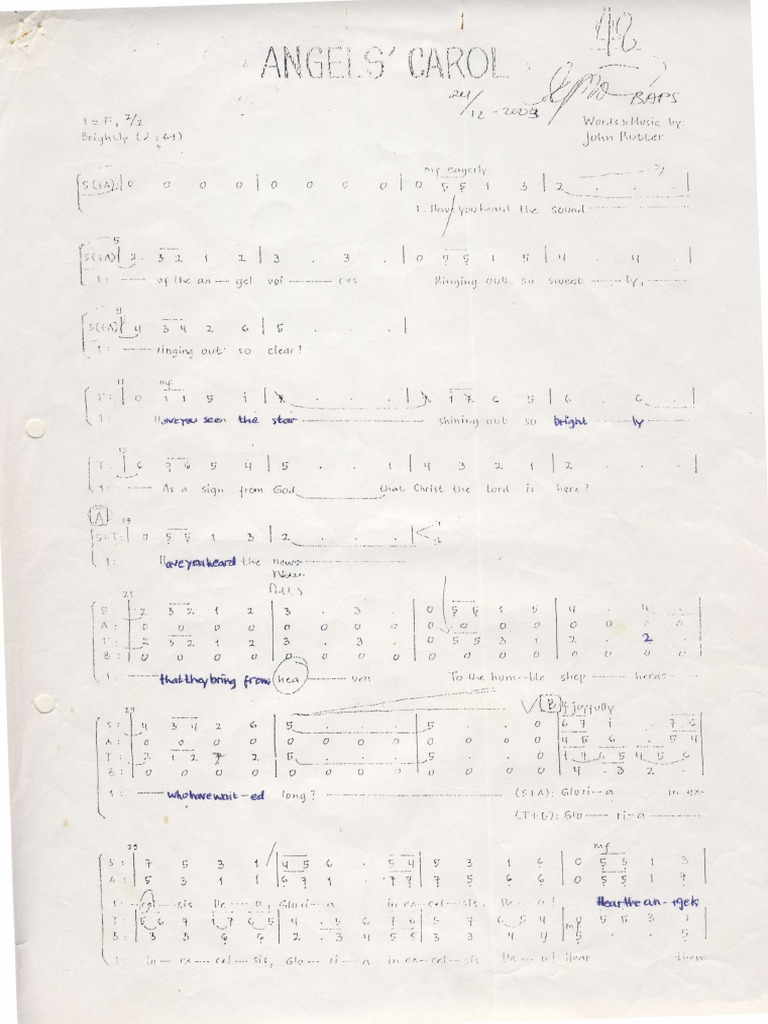 48
ANGELS' CAROL
24/12-2003
BAPS
1 = F, 2/2
Words & Music by:
Brightly (♩ = 64)
John Rutter
mf eagerly
S(+A): 0 0 0 0 | 0 0 0 0 | 0 5 5 1 3 | 2 . . . |
1. Have you heard the sound
5
S(+A) 2 . 3 2 1 2 | 3 . 3 . | 0 5 5 1 5 | 4 . 4 . |
1: of the an--gel voi---ces Ringing out so sweet---ly,
9
S(+A) 4 3 4 2 6 | 5 . . . |
1: ringing out so clear!
11
mf
T: 0 1 1 5 i | 7 . . . | 7 1 7 6 5 | 6 . 6 . |
1: Have you seen the star shining out so bright ly
15
T: 6 7 6 5 4 | 5 . . 1 | 4 3 2 1 | 2 . . . |
1: As a sign from God that Christ the lord is here?
A 19
S+T: 0 5 5 1 3 | 2 . . . |
1: Have you heard the news
21
S: 2 3 2 1 2 | 3 . 3 . | 0 5 5 1 5 | 4 . 4 .
A: 0 0 0 0 | 0 0 0 0 | 0 0 0 0 | 0 0 0 0
T: 2 3 2 1 2 | 3 . 3 . | 0 5 5 3 1 | 2 . 2 .
B: 0 0 0 0 | 0 0 0 0 | 0 0 0 0 | 0 0 0 0
1: that they bring from hea---ven To the hum--ble shep---herds
B f joyfully
S: 4 3 4 2 6 | 5 . . . | 5 . . 0 | 6 7 i . 7 6
A: 0 0 0 0 | 0 0 0 0 | 0 0 0 0 | 4 5 6 . 5 4
T: 2 1 2 2 | 5 . . . | 5 . . 0
B: 0 0 0 0 | 0 0 0 0 | 0 0 0 0 | 4 . 3 2 .
1: who have wait--ed long? (S+A): Glori--a in ex-
(T+B): Glo---ri-a
mf
S: 7 5 3 1 | 4 5 6 . 5 4 | 5 3 1 6 | 0 5 5 1 3
A: 5 3 1 1 | 6 7 1 . 7 7 | 7 5 1 6 | 0 5 5 1 7
1: cel--sis De--o, Glori--a in ex-cel-sis, De--o! Hear the an--gels
T: 5 6 7 i 7 6 5 | 4 . 5 6 7 6
B: 3 3 6 6 | 2 . 3 4 5 5 | 3 3 4 4
1: in--ex--cel--sis, Glo--ri--a in ex-cel--sis De--o! Hear them